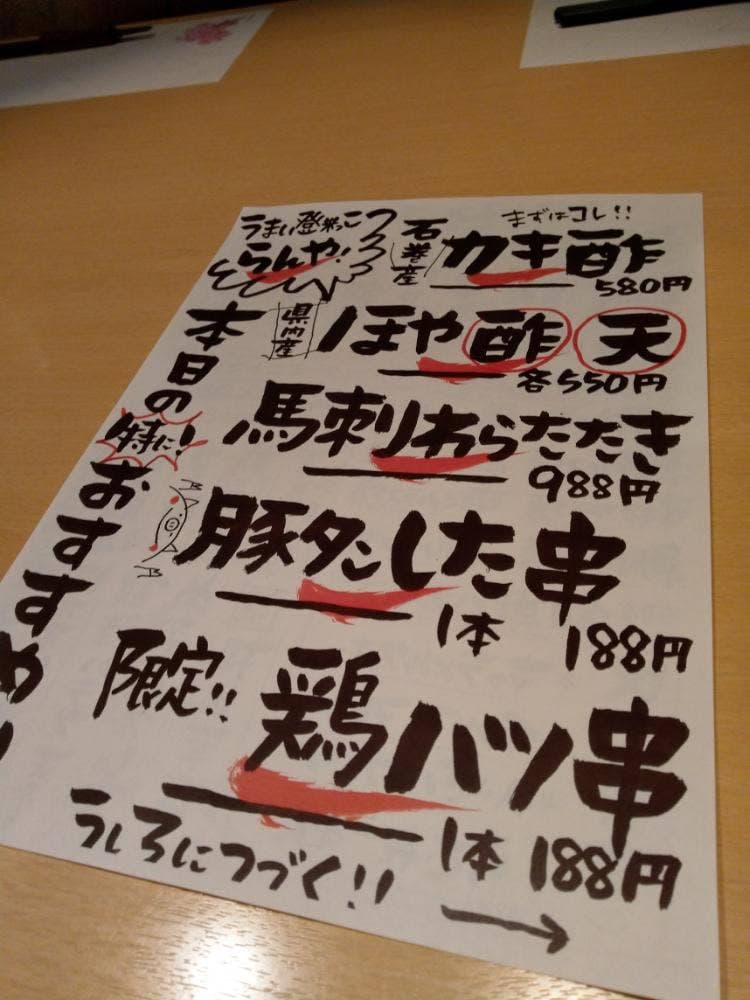 うまい登米っこ
とらんや!
本日の
特に!
おすすめ!
まずはコレ!!
石巻産
カキ酢
580円
県内産
ほや酢 天
各550円
馬刺わらたたき
988円
豚タンした串
1本 188円
限定!!
鶏ハツ串
1本 188円
うしろにつづく!!